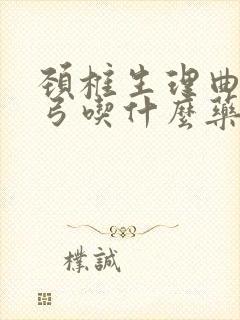 頚椎生理曲
弓喫什麼藥
樸誠